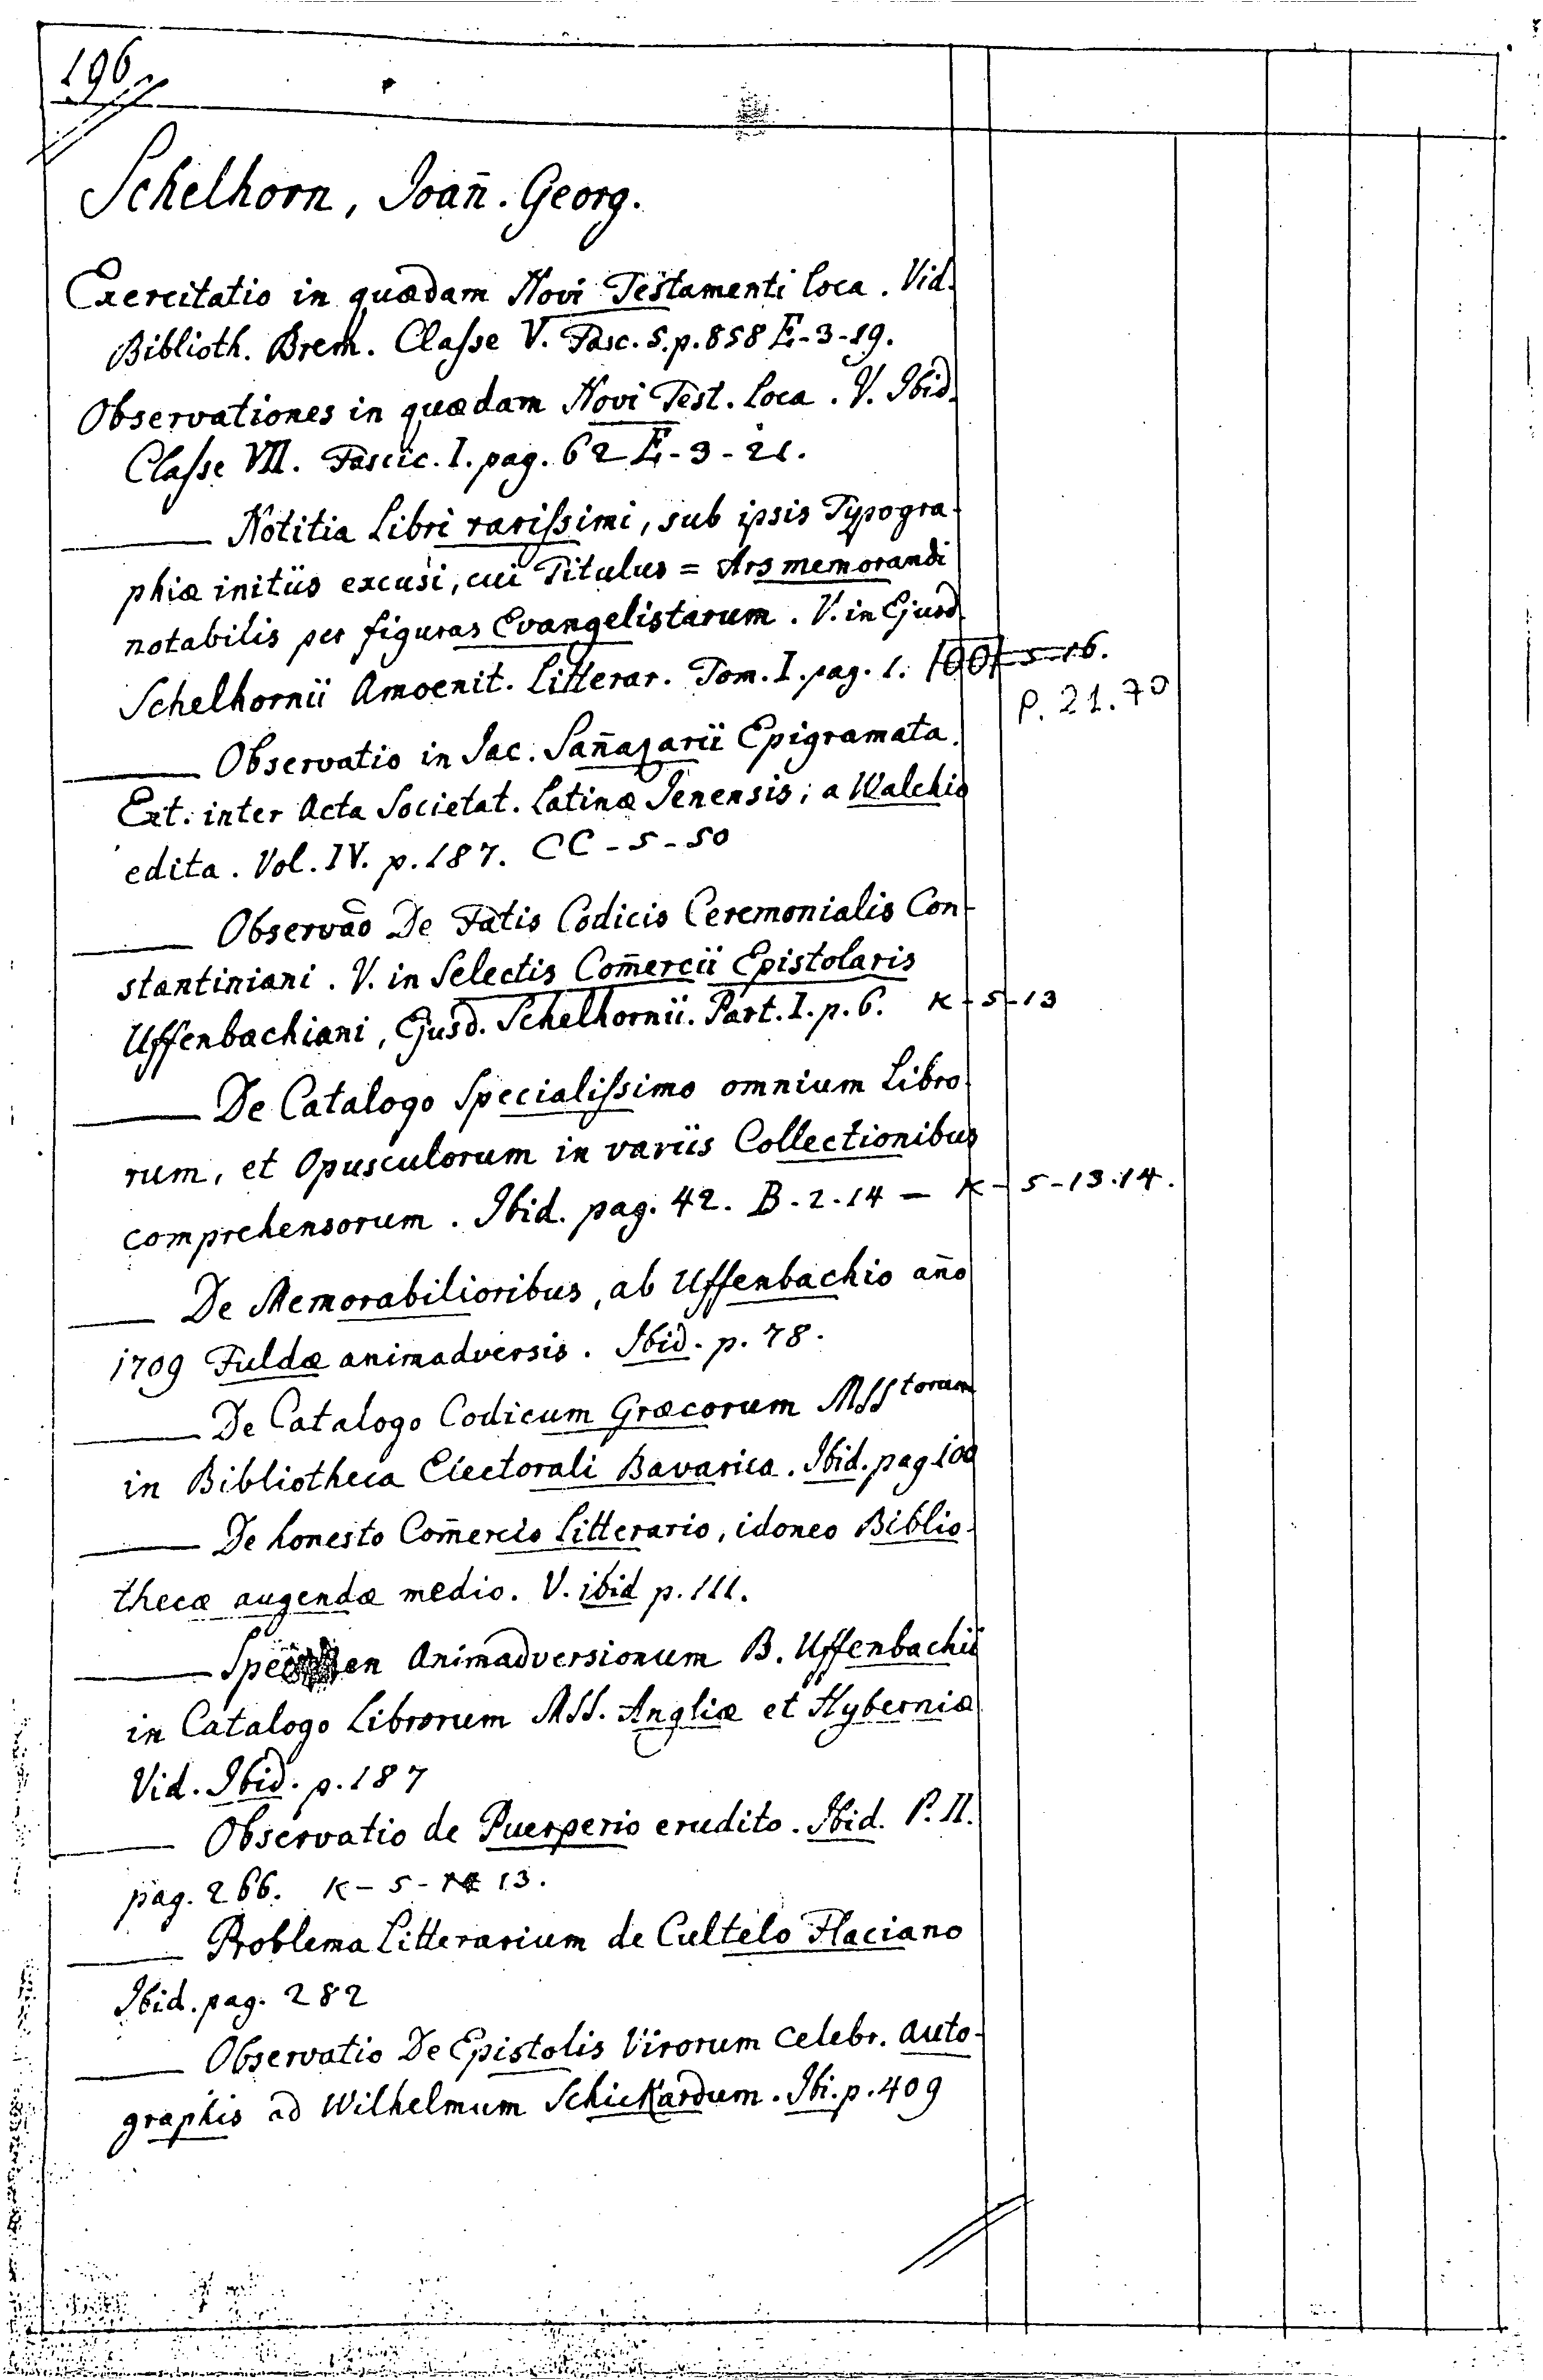 196
Schelhorn, Joan̄. Georg.
Exercitatio in quædam Novi Testamenti loca. Vid.
Biblioth. Brem. Classe V. Fasc. 5. p. 858 E-3-19.
Observationes in quædam Novi Test. loca. V. Ibid.
Classe VII. Fascic. I. pag. 62 E-3-21.
—— Notitia Libri rarissimi, sub ipsis Typogra-
phiæ initiis excusi, cui Titulus = Ars memorandi
notabilis per figuras Evangelistarum. V. in Ejusd.
Schelhornii Amoenit. Litterar. Tom. I. pag. 1. 5-16.
P. 21. 70
—— Observatio in Jac. San̄azarii Epigramata.
Ext. inter Acta Societat. Latinæ Jenensis; a Walchio
edita. Vol. IV. p. 187. CC-5-50
—— Observão De Fatis Codicis Ceremonialis Con-
stantiniani. V. in Selectis Com̄ercii Epistolaris
Uffenbachiani, Ejusd. Schelhornii. Part. I. p. 6. K-5-13
—— De Catalogo Specialissimo omnium Libro-
rum, et Opusculorum in variis Collectionibus
comprehensorum. Ibid. pag. 42. B-2-14 — K-5-13.14.
—— De Memorabilioribus, ab Uffenbachio an̄o
1709 Fuldæ animadversis. Ibid. p. 78.
—— De Catalogo Codicum Græcorum MSStorum
in Bibliotheca Electorali Bavarica. Ibid. pag 100
—— De honesto Com̄ercio Litterario, idoneo Biblio-
thecæ augendæ medio. V. ibid p. 111.
—— Specimen Animadversionum B. Uffenbachii
in Catalogo Librorum MSS. Angliæ et Hyberniæ
Vid. Ibid. p. 187
—— Observatio de Puerperio erudito. Ibid. P. II.
pag. 266. K-5-13.
—— Problema Litterarium de Cultelo Flaciano
Ibid. pag. 282
—— Observatio De Epistolis Virorum celebr. auto-
graphis ad Wilhelmum Schickardum. Ibi. p. 409